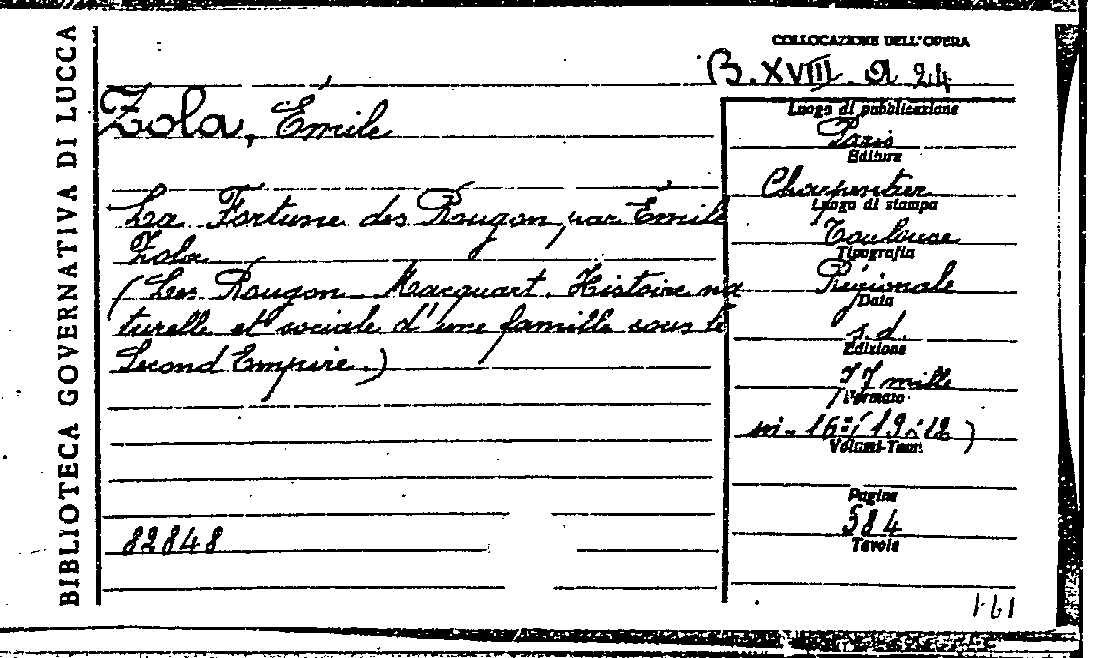 BIBLIOTECA GOVERNATIVA DI LUCCA
COLLOCAZIONE DELL'OPERA
B. XVIII. a 24
Zola, Émile
La Fortune des Rougon, par Émile
Zola
(Les Rougon-Macquart. Histoire na
turelle et sociale d'une famille sous le
Second Empire.)
82848
Luogo di pubblicazione
Paris
Editore
Charpentier
Luogo di stampa
Toulouse
Tipografia
Régionale
Data
s. d.
Edizione
77 mille
Formato
in-16=(19×12)
Volumi-Tomi
Pagine
584
Tavole
161